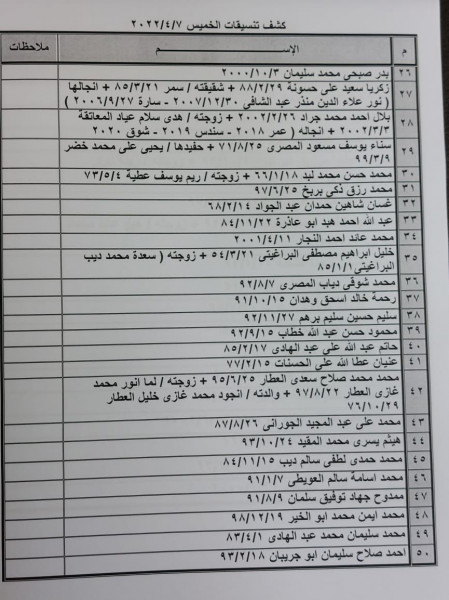 كشف تنسيقات الخميس ٢٠٢٢/٤/٧
م الإســـــــم ملاحظات
٢٦ بدر صبحي محمد سليمان ٢٠٠٠/١٠/٣
٢٧ زكريا سعيد على حسونة ٨٨/٢/٢٩ + شقيقته / سمر ٨٥/٣/٢١ + انجالها
( نور علاء الدين منذر عبد الشافي ٢٠٠٧/١٢/٣٠ - سارة ٢٠٠٦/٩/٢٧ )
٢٨ بلال احمد محمد جراد ٢٠٠٢/٢/٢٦ + زوجته / هدى سلام عياد المعاتقة
٢٠٠٢/٣/٣ + انجاله ( عمر ٢٠١٨ - سندس ٢٠١٩ - شوق ٢٠٢٠
٢٩ سناء يوسف مسعود المصرى ٧١/٨/٢٥ + حفيدها / يحيى على محمد خضر
٩٩/٣/٩
٣٠ محمد حسن محمد لبد ٦٦/١/١٨ + زوجته / ريم يوسف عطية ٧٣/٥/٤
٣١ محمد رزق ذكى بربخ ٩٧/٦/٢٥
٣٢ غسان شاهين حمدان عبد الجواد ٦٨/٢/١٤
٣٣ عبد الله احمد هبد ابو عاذرة ٨٤/١١/٢٢
٣٤ محمد عائد احمد النجار ٢٠٠١/٤/١١
٣٥ خليل ابراهيم مصطفى البراغيتى ٥٤/٣/٢١ + زوجته ( سعدة محمد ديب
البراغيتى ٨٥/١/١
٣٦ محمد شوقى دياب المصرى ٩٢/٨/٧
٣٧ رحمة خالد اسحق وهدان ٩١/١٠/١٥
٣٨ سليم حسين سليم برهم ٩٢/١١/٢٧
٣٩ محمود حسن عبد الله خطاب ٩٢/٩/١٥
٤٠ حاتم عبد الله على عبد الهادى ٨٥/٢/١٧
٤١ عنيان عطا الله على الحسنات ٧٧/٢/١٥
٤٢ محمد محمد صلاح سعدى العطار ٩٥/٦/٢٥ + زوجته / لما انور محمد
غازى العطار ٩٧/٨/٢٢ + والدته / انجود محمد غازى خليل العطار
٧٦/١٠/٢٩
٤٣ محمد على عبد المجيد الجورانى ٨٧/٨/٢٦
٤٤ هيثم يسرى محمد المقيد ٩٣/١٠/٢٤
٤٥ محمد حمدى لطفى سالم ديب ٨٤/١١/١٥
٤٦ محمد اسامة سالم العويطى ٩١/١/٧
٤٧ ممدوح جهاد توفيق سلمان ٩١/٨/٩
٤٨ محمد ايمن محمد ابو الخير ٩٨/١٢/١٩
٤٩ محمد سليمان محمد عبد الهادى ٨٣/٤/١
٥٠ احمد صلاح سليمان ابو جريبان ٩٣/٢/١٨